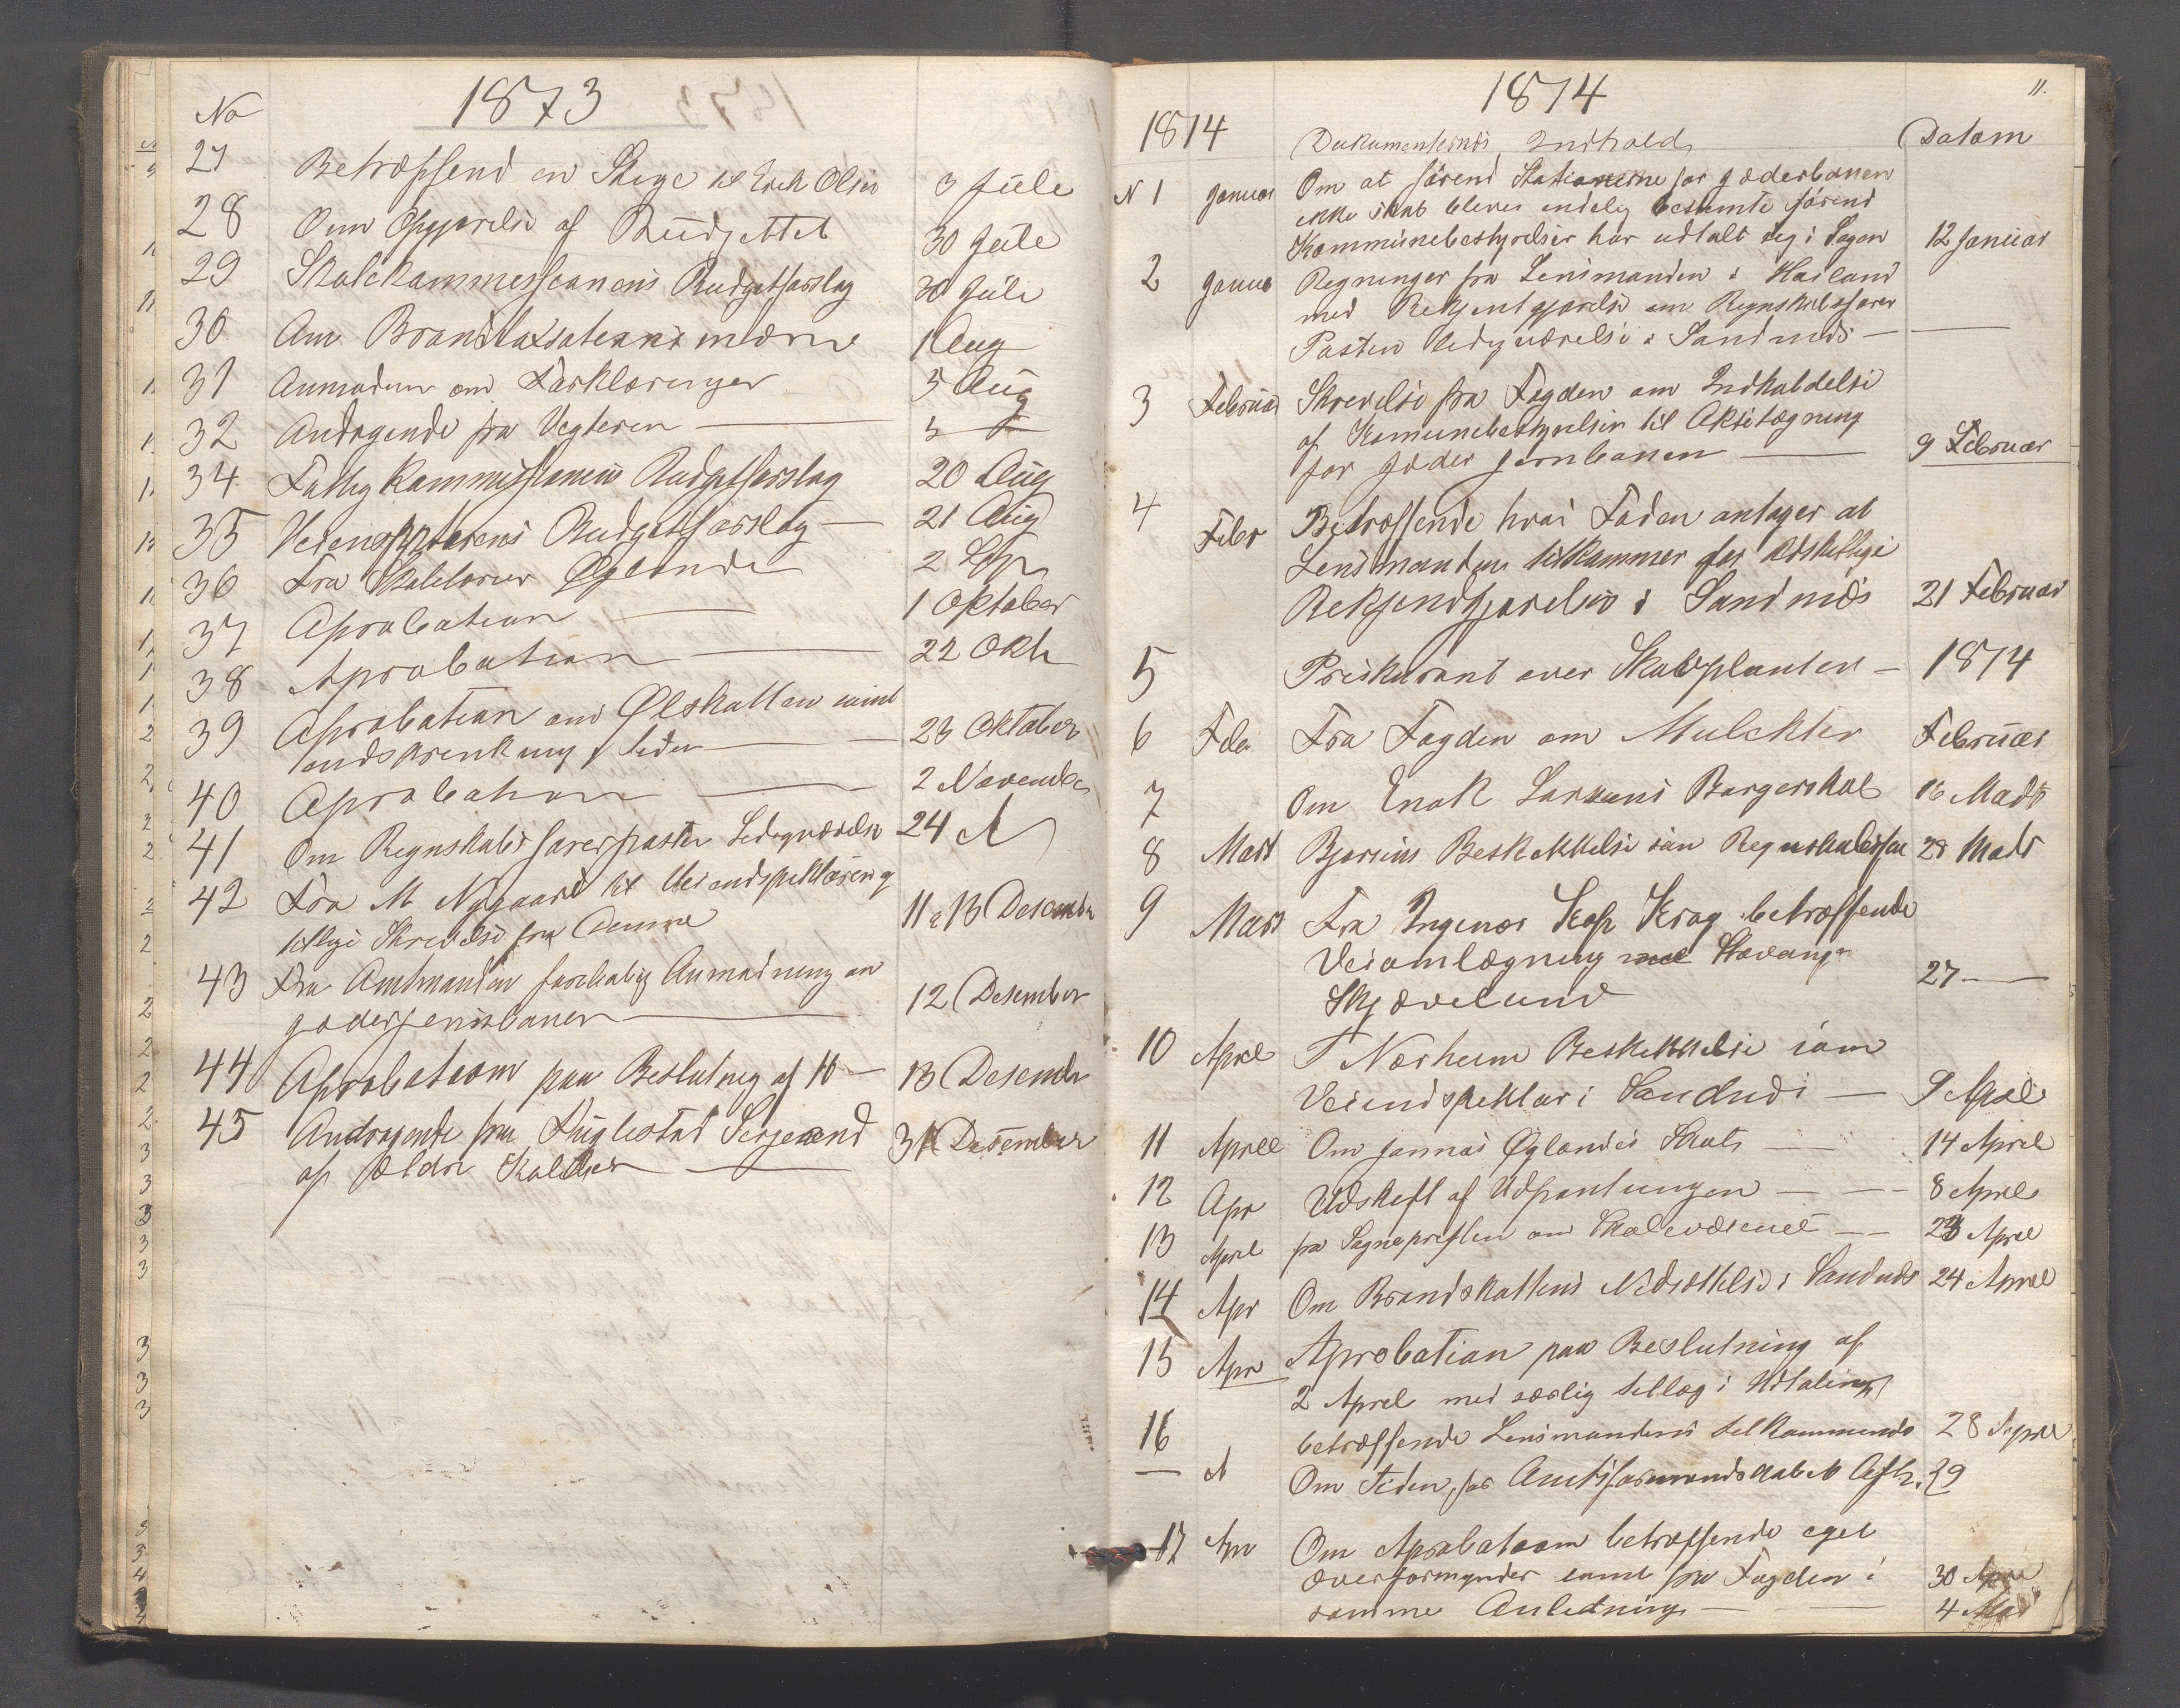 No 1873
27 Betræffend en Stige til Erik Olsen 3 Jule
28 Om Opgjørelse af Budgettet 30 Jule
29 Skolekommissionens Budgetforslag 30 Jule
30 Om Brandtaxsationsmændene 1 Aug
31 Anmoden om Færklæringer 5 Aug
32 Andragende fra Vegteren — 5 —
34 Fattigkommissionens Budgetforslag 20 Aug
35 Veiensppterens Budgetforslag — 21 Aug
36 Fra Skolelærer Øglænde 2 Sep
37 Aprobation — 1 Oktober
38 Aprobation — 22 Okt
39 Aprobation om Ølskatten samt
indskrenkning i tiden — 23 Oktober
40 Aprobation — 2 November
41 Om Regnskabsførerposten Ledigværelse 24 N
42 Fra M Nygaard til Veiendspektøren
tillige Skrivelse fra Denne 11 & 13 Desember
43 Fra Amtmanden Anmodning om
Jæderjernbanen — 12 Desember
44 Aprobatoom paa Beslutning af 10 — 13 Desember
45 Andragende fra Kuglestad
af ældre Kolder — 31 Desember
1874 11.
1874 Dokumenternes Indhold Datom
N 1 Januar Om at førend Stationerne for Jæderbanen
ikke skal blever endelig bestemte førend
Kommunebestyrelser har udtalt seg i Sagen 12 Januar
2 Januar Regninger fra Lensmanden i Haaland
med Bekjentgjørelse om Regnskabsfører
Posten Ledigværelse i Sandnæs — —
3 Februar Skrivelse fra Fogden om Indkaldelse
af Komunebestyrelsen til Aktetægning
for Jæder jernbanen — 9 Februar
4 Febr Betræffende hvas Foden antager at
Lensmanden tilkommer for adskellige
Bekjendgjørelser i Sandnæs 21 Februar
5 Priskurant over Skovplanter — 1874
6 Febr Fra Fogden om Mulckter Februar
7 Om Enok Larsens Borgerskab 16 Mads
8 Mart Bjørsens Beskikkelse som Regnskabsfør 28 Mads
9 Mart Fra Ingenør Kap Krag betræffende
Veiomlægning Stavanger
Skjævelund 27 —
10 Aprel T Nærheim Beskikkelse som
Veiendspektør i Sandnæs — 9 Aprel
11 Aprell Om Jonnas Øglændes Skat — 14 Aprel
12 Apr Udskeft af Udpantningen — — 8 Aprel
13 Aprel fra Sognepresten om Skolevæsenet — 23 Aprel
14 Apr Om Brandskattens Nedsættelse i Sandnæs 24 Aprel
15 Apr Aprobation paa Beslutning af
2 Aprel med særlig tillæg i Udtaling
16 betræffende Lensmandens tilkommende 28 Aprel
— N Om Tiden for Amtsformandskabets Afh. 29
17 Apr Om Aprobatoom betræffende eget
overformynder samt fra Fogden i 30 Aprel
samme Anledning — — 4 Mai